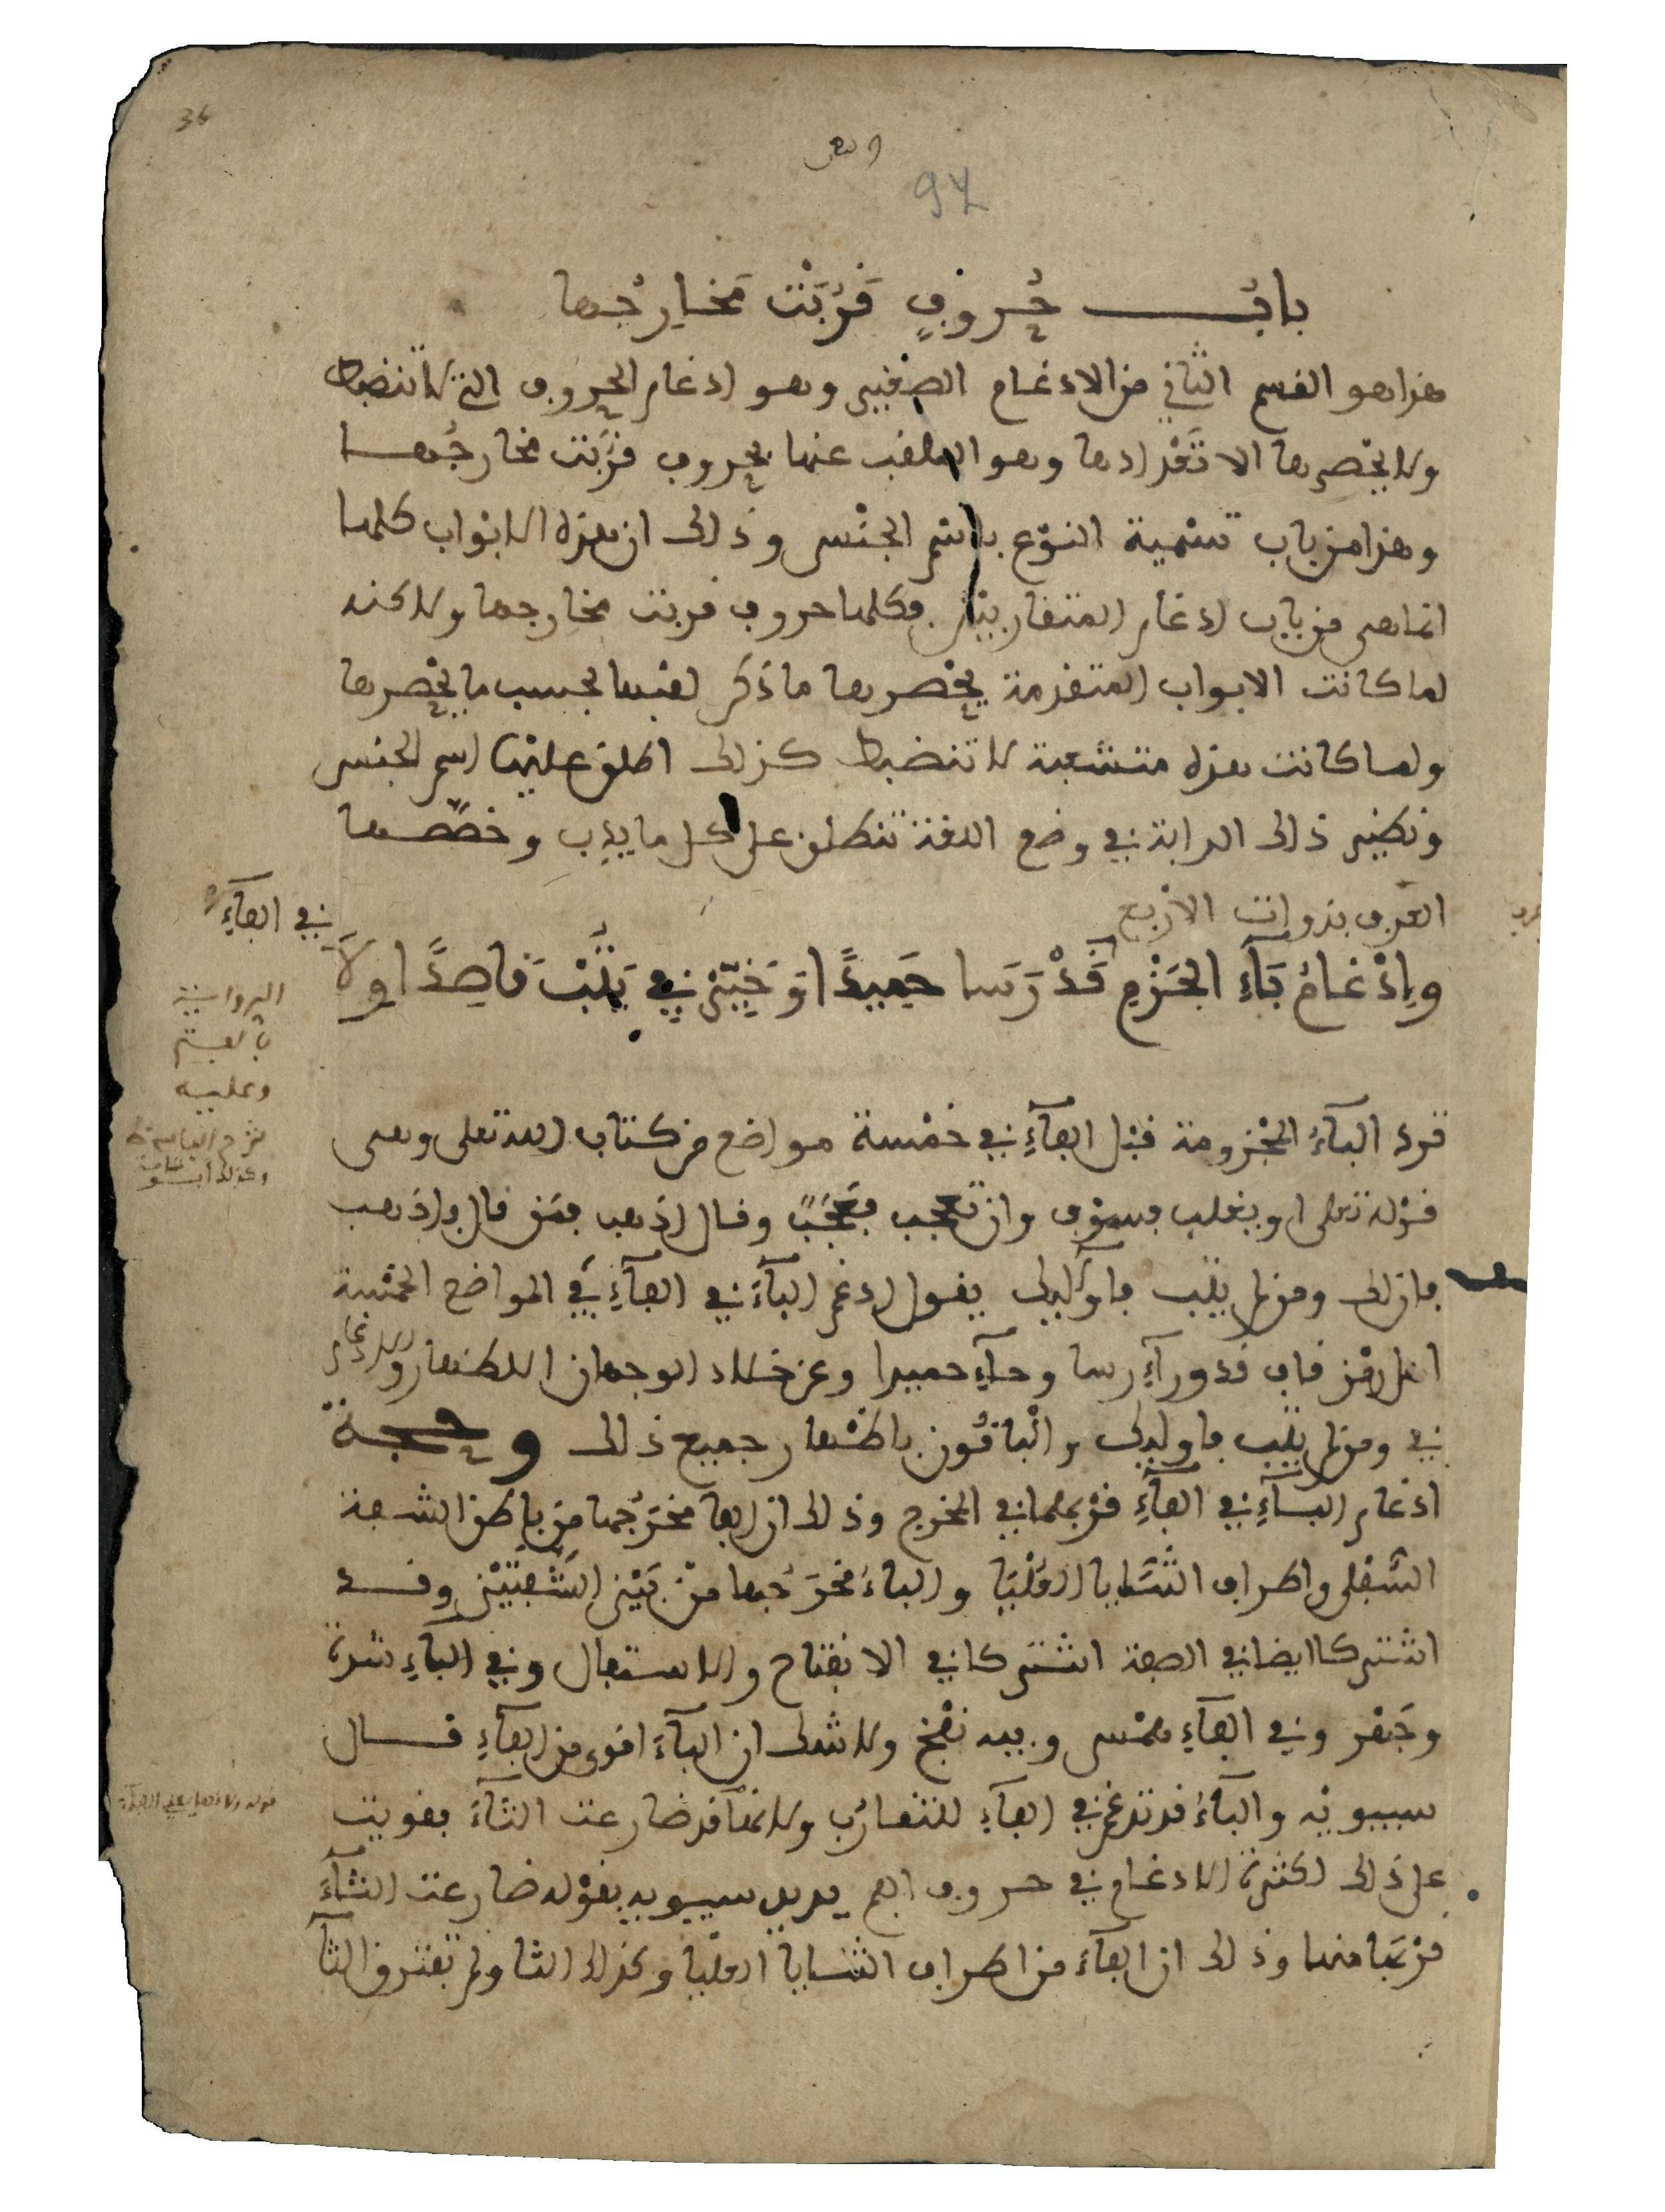 36
97
باب حُروفٍ قَرُبَتْ مَخارِجُها
هذا هو القسم الثاني من الادغام الصغير وهو ادغام الحروف التي لا تنضبط
ولا يحصرها الا تَعْدادها وهو الملقب عنها بحروف قرُبت مخارجُها
وهذا من باب تسْمية النوْع باسْم الجنْس وذلك ان هذه الابْواب كلها
انما هي من باب ادغام المتقاربيْن فكلها حروف قربت مخارجها ولاكنه
لما كانت الابواب المتقدمة يحْصرها ما ذكر لقبها بحسب ما يحْصرها
ولما كانت هذه متشعبة لا تنضبط كذلك اطلق عليْها اسم الجنس
ونظير ذلك الدابة في وضع اللغة تنطلق على كل ما يدِب وخصّصها
العرف بذوات الارْبع
وإدْغامُ بَآءِ الجَزْمِ قَدْ رَسا حَمِيدًا وَخَيِّرْ فِي يَتُبْ قاصِدًا وِلَا
في الفآءِ
الرواية
بالفتح
وعليه
ترد البآءُ المجْزومة قبْل الفآءِ في خمْسة مواضع من كتاب الله تعلى وهي
قوْله تعلى او يغلب فسوْف وان تعْجب فعَجَبٌ وقال اذهب فمَن قال فاذهب
فان لك ومن لم يتب فأوْلَئك يقول ادغم البآءَ في الفآءِ في المواضع الخمْسة
لمن رمْز قاف قد ورآءِ رسا وحآءِ حميدا وعن خلاد الوجهان الاظهار والادْغام
في ومن لم يتُب فاولئك والْباقُون باظْهار جميع ذلك وحجة
ادْغام البآءِ في الفآءِ قرْبهما في المخرج وذلك ان الفا مخرَجُها من باطن الشفة
السُّفلى واطراف الثنَايا العُلْيَا والباءُ مخرَجُها منْ بَيْن الشَّفتيْن وقد
اشْتركا ايضا في الصفة اشتركا في الانفتاح والاستفال وفي الباءِ شدة
وجَهْر وفي الفآءِ همْس وفيه نفْخ ولا شك ان البآءَ اقوى من الفآءِ قال
سيبويْه والبآءُ قد تدغم في الفآءِ للتقارُب ولانّها قد ضارعت الثآءَ فقويت
على ذلك لكثرة الادغام في حروف الفم يريد سيبويه بقوْله ضارعت الثآءَ
قرْبَها منها وذلك ان الفآءَ من اطراف الثنايا العليا وكذلك الثا ولم تفترق الثآ